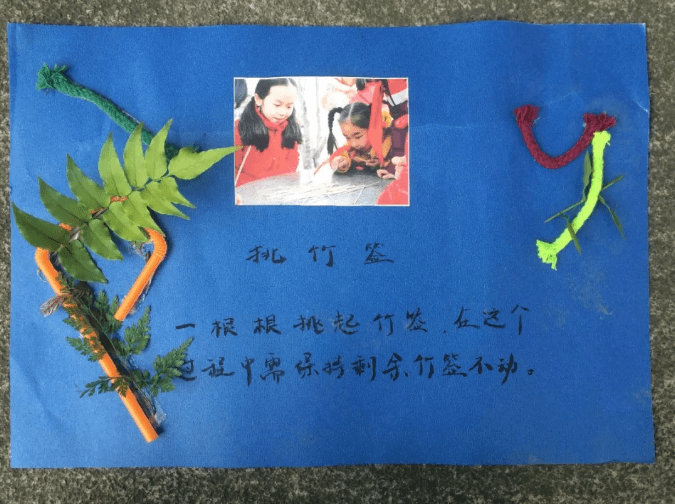 挑竹签
一根根挑起竹签,在这个
过程中需保持剩余竹签不动。